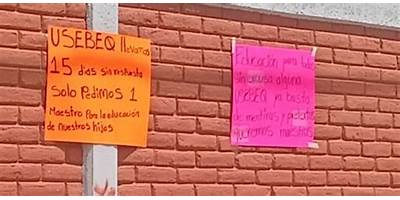 USEBEQ llevamos
15 dias sin respuesta
Solo Pedimos 1
Maestro Para la educación
de nuestros hijos
Educación para todos
sin excusa alguna
USEBEQ ya basta
de mentiras y pretextos
queremos maestros